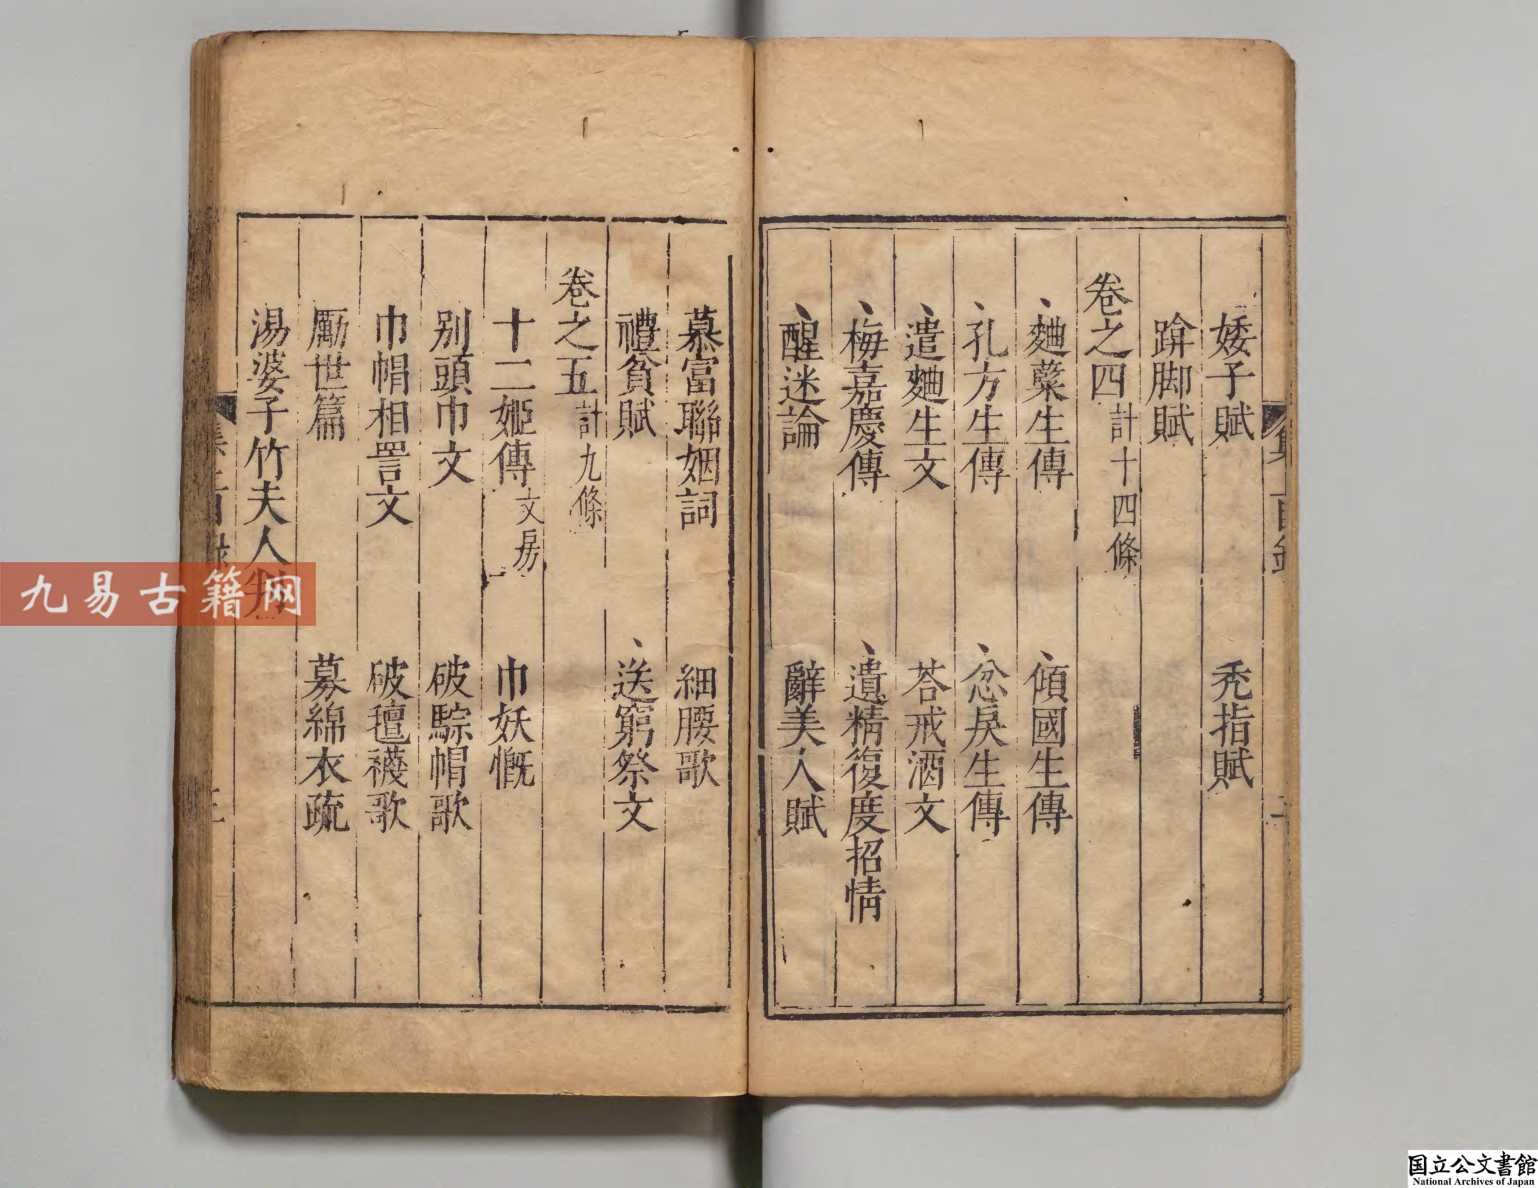 矮子賦 禿指賦
跛脚賦
卷之四計十四條
麯櫱生傳 傾國生傳
孔方生傳 忿戾生傳
遣麯生文 荅戒酒文
梅嘉慶傳 遺精復度招情
醒迷論 辭美人賦
慕富聯姻詞 細腰歌
禮貧賦 送窮祭文
卷之五計九條
十二姬傳文房 巾妖慨
別頭巾文 破騣帽歌
巾帽相詈文 破氊襪歌
勵世篇 募綿衣疏
湯婆子竹夫人判
九易古籍网
国立公文書館
National Archives of Japan